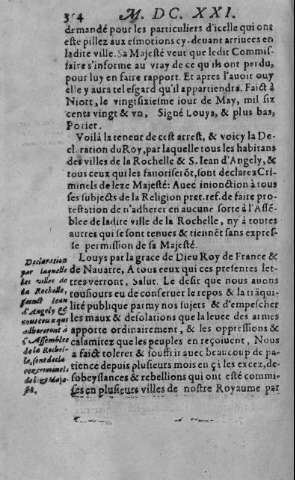 354 M. DC. XXI.
demandé pour les particuliers d'icelle qui ont
esté pillez aux esmotions cy-deuant arriuees en
ladite ville. Sa Majesté veut que ledit Commis-
saire s'informe au vray de ce qu'ils ont perdu,
pour luy en faire rapport. Et apres l'auoir ouy
elle y aura tel esgard qu'il appartiendra. Faict à
Niort, le vingtsixiesme iour de May, mil six
cents vingt & vn, Signé Louys, & plus bas,
Potier.
Voilà la teneur de cest arrest, & voicy la De-
claration du Roy, par laquelle tous les habitans
des villes de la Rochelle & S. Iean d'Angely, &
tous ceux qui les fauoriserõt, sont declarez Cri-
minels de leze Majesté: Auec inionction à tous
ses subjects de la Religion pret. ref. de faire pro-
testation de n'adherer en aucune sorte à l'Assé-
blee de ladite ville de la Rochelle, ny à toutes
autres qui se sont tenues & tiennẽt sans expres-
se permission de sa Majesté.
Louys par la grace de Dieu Roy de France &
de Nauarre, A tous ceux qui ces presentes let-
tres verront, Salut. Le desir que nous auons
tousiours eu de conseruer le repos & la trãqui-
lité publique parmy nos sujets & d'empescher
les maux & desolations que la leuee des armes
apporte ordinairement, & les oppressiõs &
calamitez que les peuples en reçoiuent, Nous
a faict tolerer & souffrir auec beaucoup de pa-
tience depuis plusieurs mois en çà les excez, de-
sobeyssances & rebellions qui ont esté commi-
ses en plusieurs villes de nostre Royaume par
Declaration
par laquelle
les villes de
la Rochelle,
sainct Iean
d'Angely &
tous ceux qui
adhereront à
l'Assemblee
de la Rochel-
le, sont decla-
rez criminels
de leze Maje-
sté,